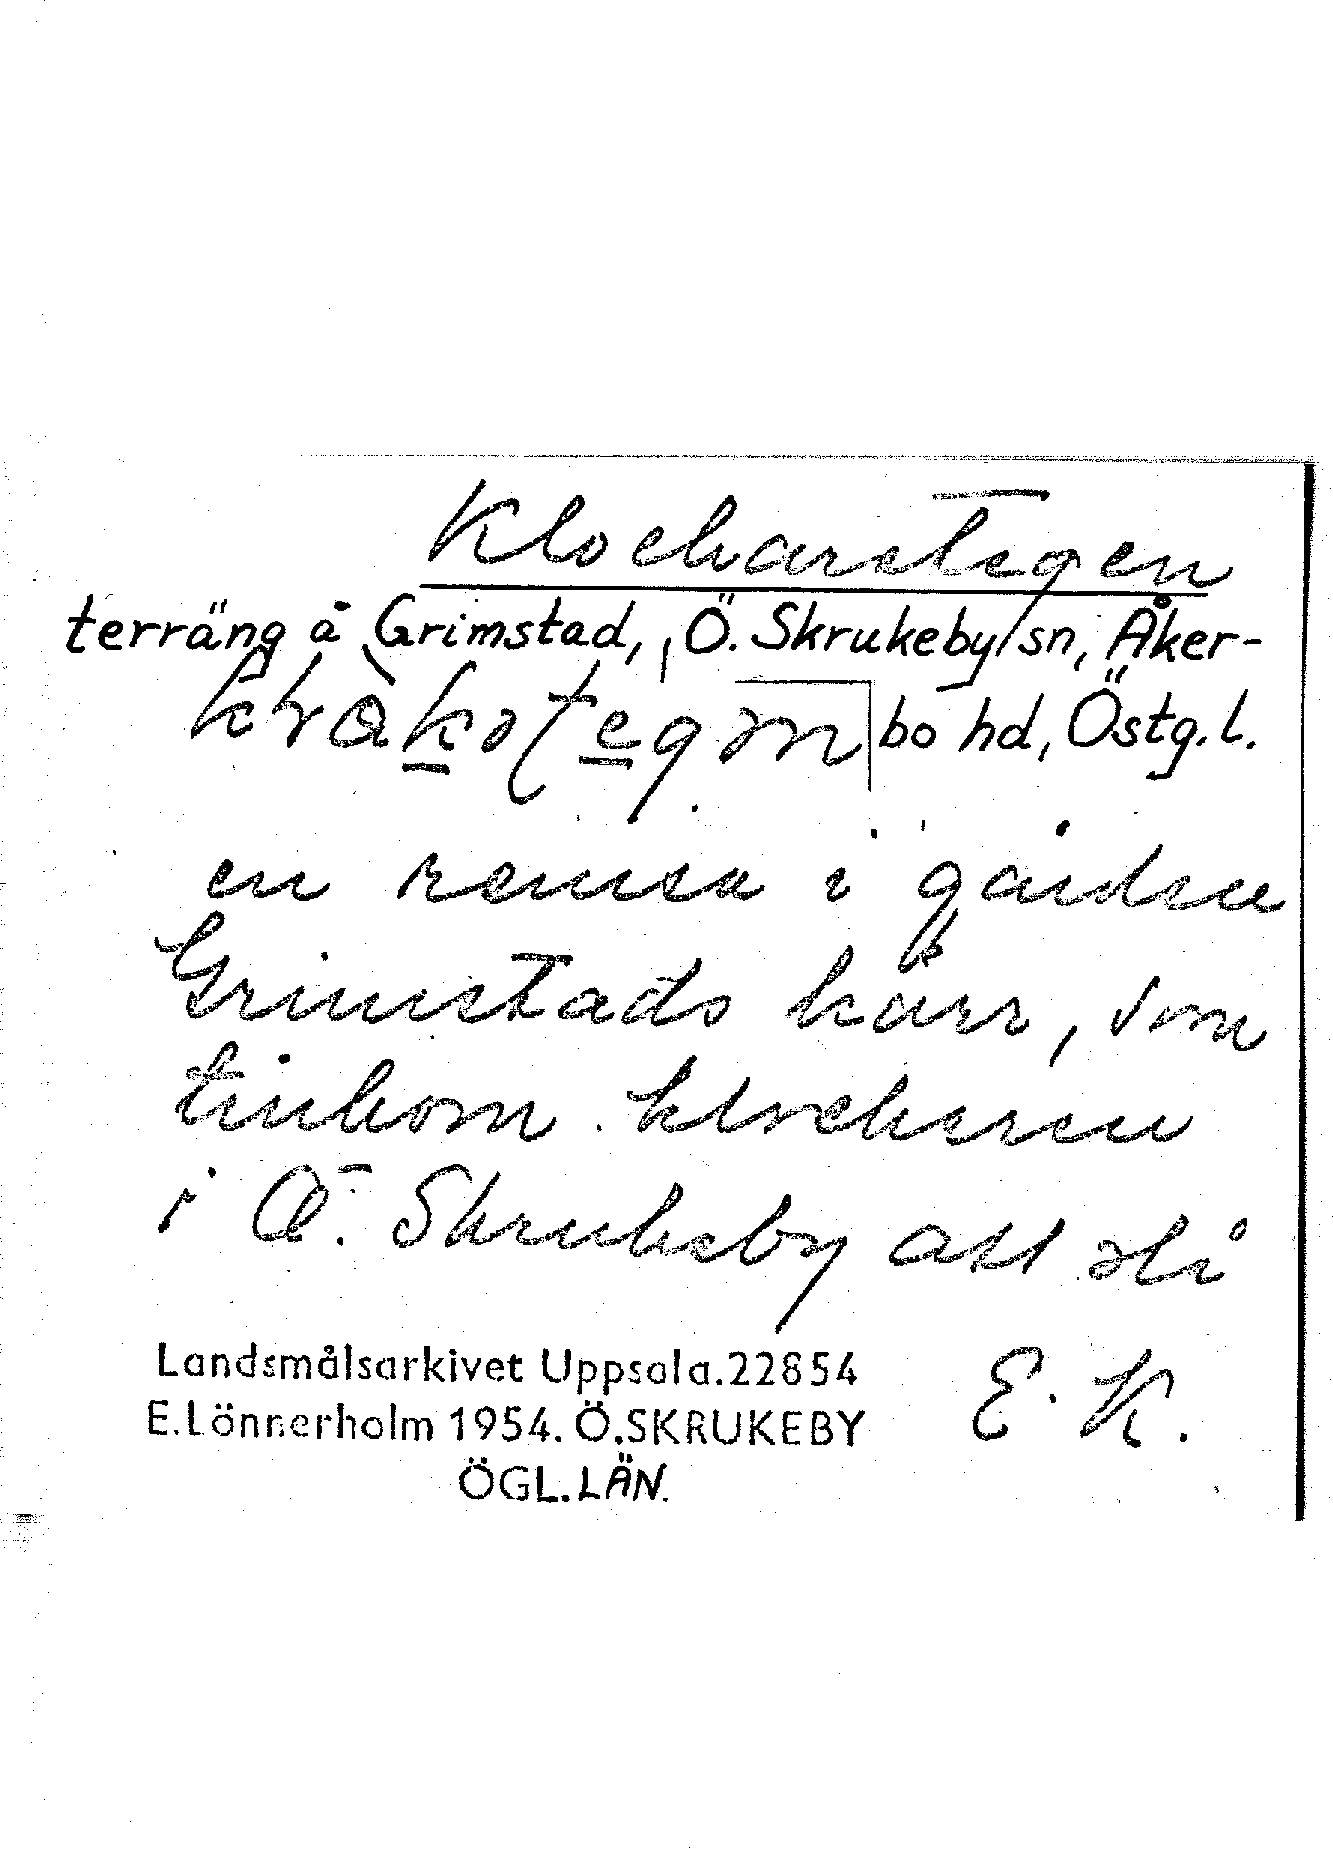 Klockarstegen
terräng å Grimstad, Ö. Skrukeby sn, Åker-
bo hd, Östg. l.
en remsa i gården
Grimstads kärr, som
tillkom klockaren
i Ö. Skrukeby att slå
Landsmålsarkivet Uppsala.22854
E.Lönnerholm 1954. Ö.SKRUKEBY
ÖGL.LÄN.
E. K.